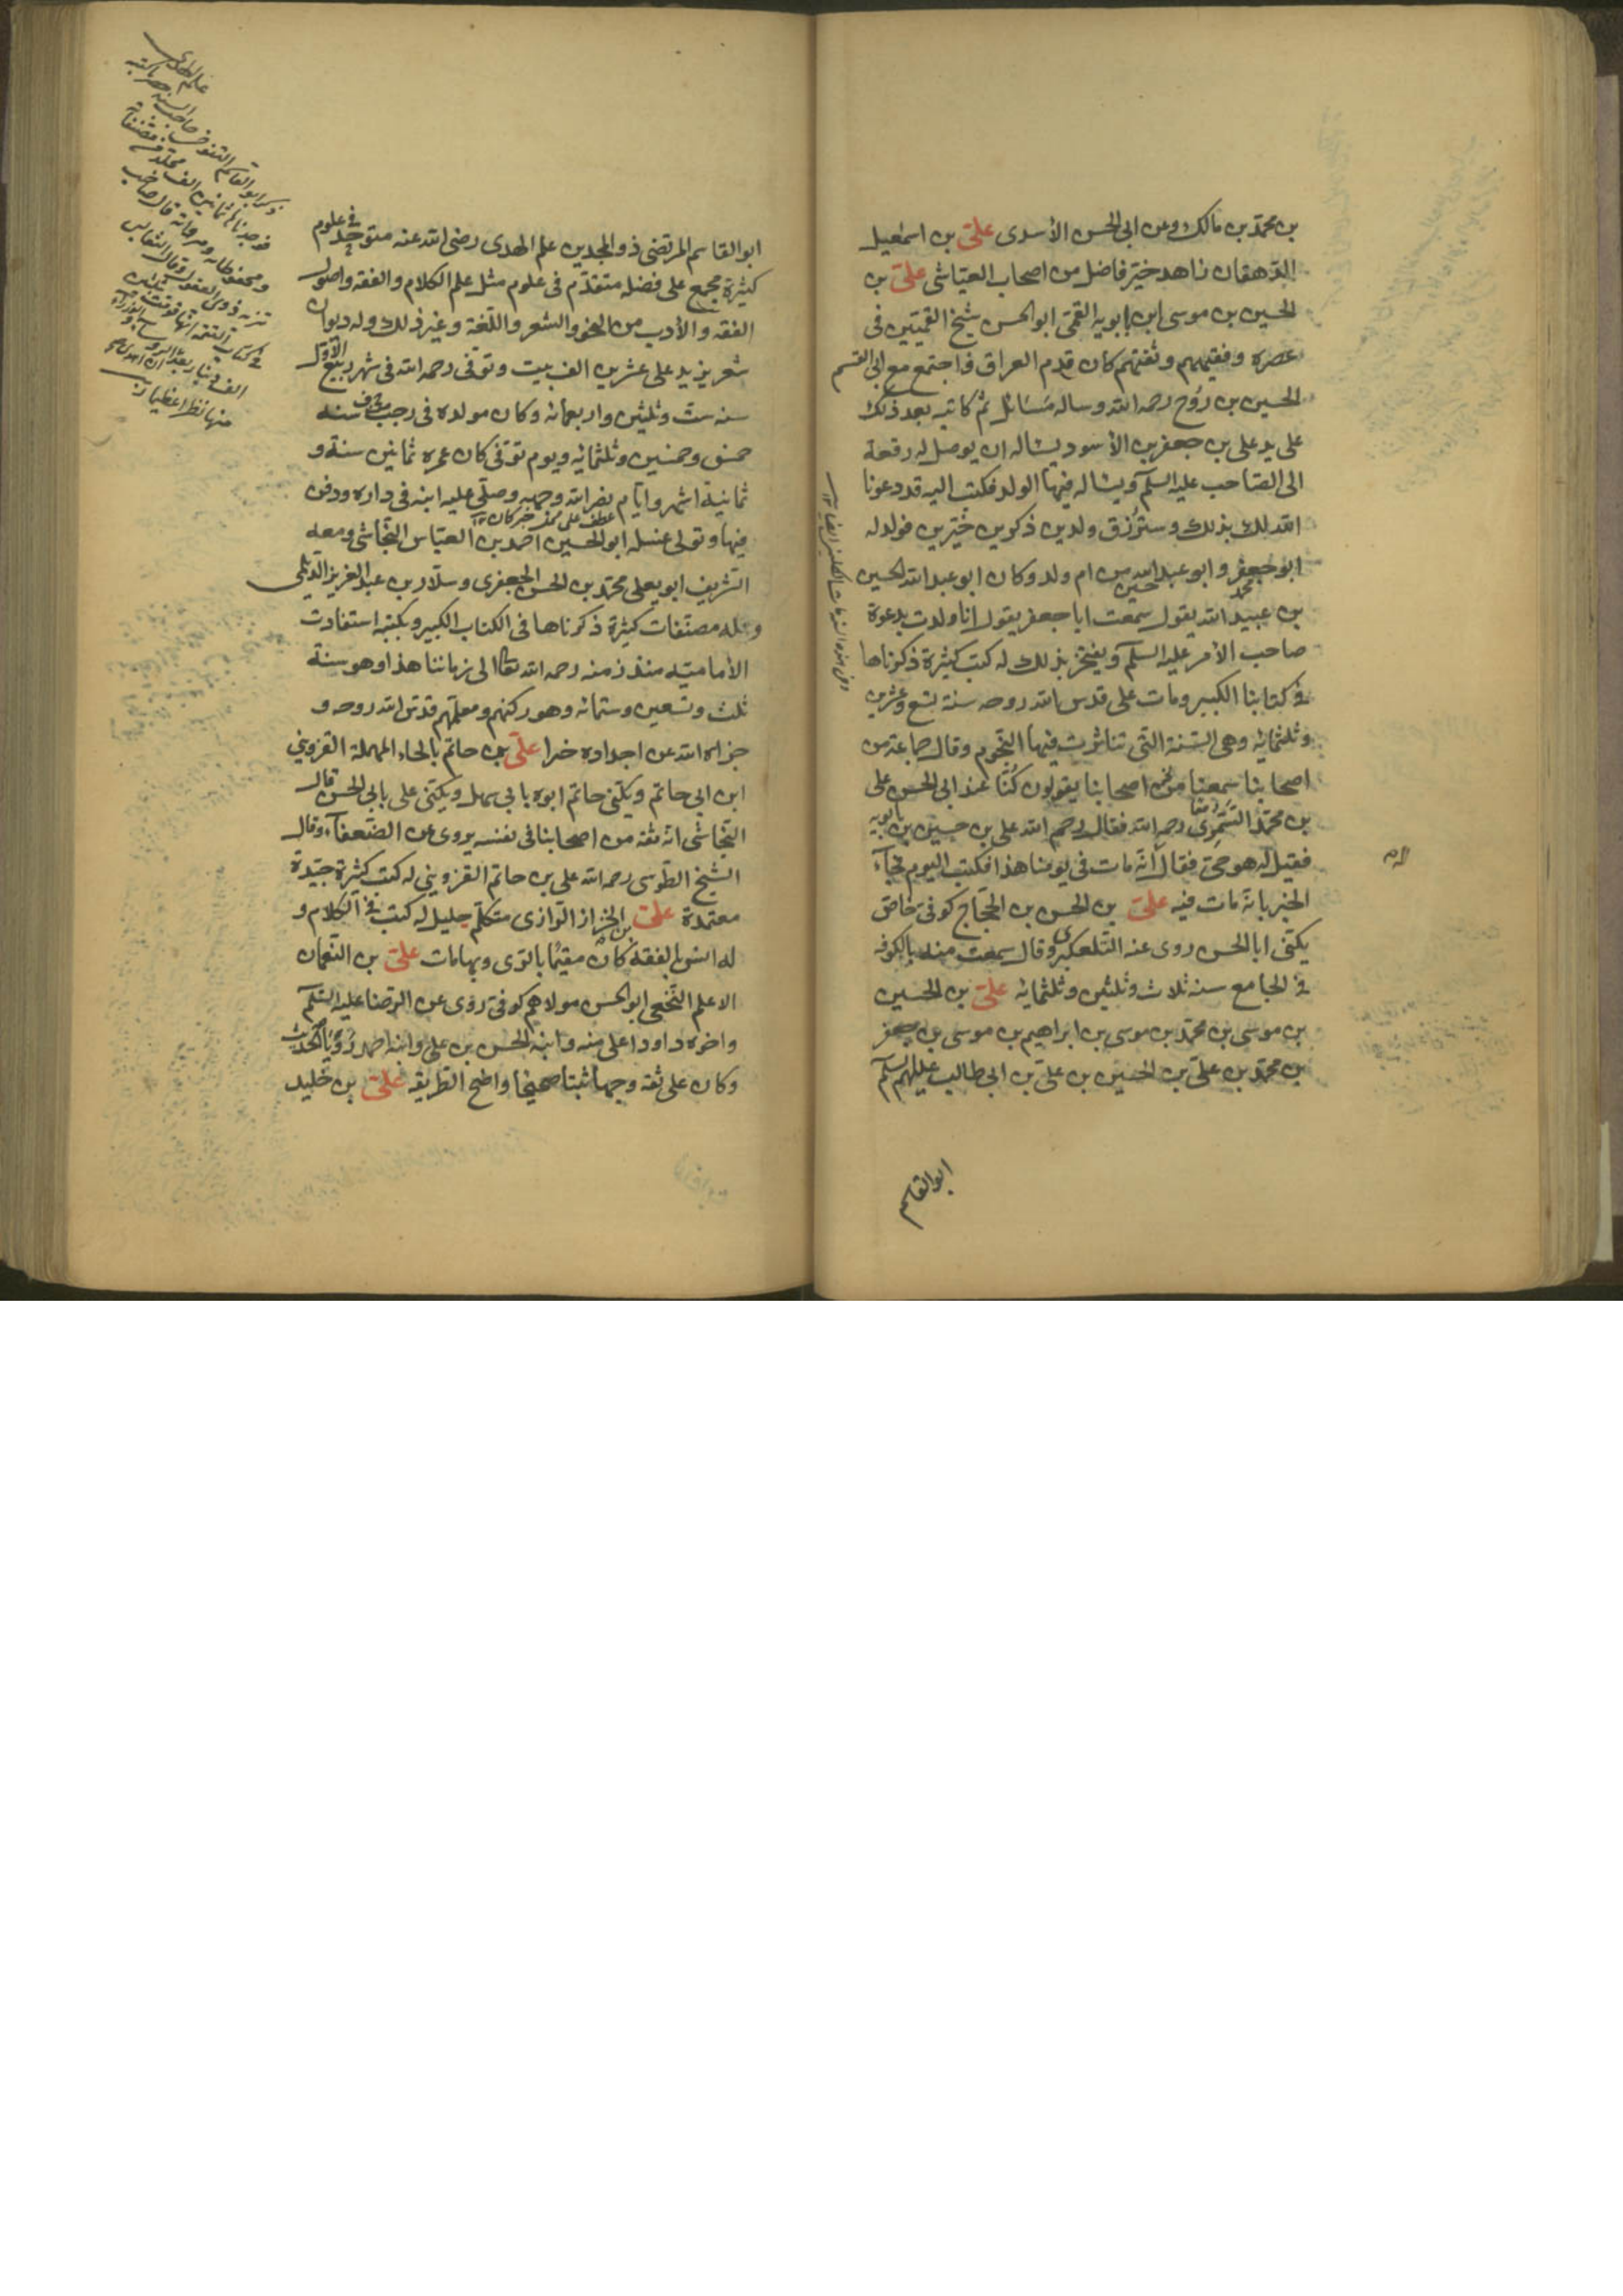 بن محمد بن مالك وعن ابى الحسن الأسدى على بن اسمعيل
الدهقان زاهد خير فاضل من اصحاب العياشى على بن
الحسين بن موسى بن بابويه القمى ابو الحسن شيخ القميين فى
عصره وفقيههم وثقتهم كان قدم العراق واجتمع مع ابى القسم
الحسين بن روح رحمه الله وساله مسائل ثم كاتبه بعد ذلك
على يد على بن جعفر بن الأسود يساله ان يوصل له رقعة
الى الصاحب عليه السلم ويساله فيها الولد فكتب اليه قد دعونا
الله لك بذلك وسترزق ولدين ذكرين خيرين فولد له
ابو جعفر وابو عبد الله من ام ولد وكان ابو عبد الله الحسين
محمد حسين
بن عبيد الله يقول سمعت ابا جعفر يقول انا ولدت بدعوة
صاحب الأمر عليه السلم ويفتخر بذلك له كتب كثيرة ذكرناها
فى كتابنا الكبير ومات على قدس الله روحه سنة تسع وعشرين
وثلثمائه وهى السنة التى تناثرت فيها النجوم وقال جماعة من
اصحابنا سمعنا من اصحابنا يقولون كنا عند ابى الحسن على
بن محمد السمرى رحمه الله فقال رحم الله على بن حسين بن بابويه
فقيل له هو حى فقال انه مات فى يومنا هذا فكتب اليوم فجاء
الخبر بانه مات فيه على بن الحسن بن الحجاج كوفى خاص
يكنى ابا الحسن روى عنه التلعكبرى وقال سمعت منه بالكوفه
فى الجامع سنه ثلاث وثلثين وثلثمائه على بن الحسين
بن موسى بن محمد بن موسى بن ابراهيم بن موسى بن جعفر
بن محمد بن على بن الحسين بن على بن ابى طالب عليهم السلم
ابو القاسم
ابو القاسم المرتضى ذو المجدين علم الهدى رضى الله عنه متوحد فى علوم
كثيرة مجمع على فضله متقدم فى علوم مثل علم الكلام والفقه واصول
الفقه والأدب من النحو والشعر واللغة وغير ذلك وله ديوان
شعر يزيد على عشرين الف بيت وتوفى رحمه الله فى شهر ربيع الأول
سنه ست وثلثين واربعمائه وكان مولده فى رجب سنه
خمس وخمسين وثلثمائه ويوم توفى كان عمره ثمانين سنة و
ثمانية اشهر وايام نضر الله وجهه وصلى عليه ابنه فى داره ودفن
فيها وتولى غسله ابو الحسين احمد بن العباس النجاشى ومعه
الشريف ابو يعلى محمد بن الحسن الجعفرى وسلار بن عبد العزيز الديلمى
وله مصنفات كثيرة ذكرناها فى الكتاب الكبير وبكتبه استفادت
الأمامية منذ زمنه رحمه الله تعالى الى زماننا هذا وهو سنة
ثلث وتسعين وستمائه وهو ركنهم ومعلمهم قدس الله روحه و
جزاه الله عن اجداده خيرا على بن حاتم بالحاء المهملة القزوينى
ابن ابى حاتم ويكنى حاتم ابوه بابى سهل ويكنى على بابى الحسن قال
النجاشى انه ثقة من اصحابنا فى نفسه يروى عن الضعفاء وقال
الشيخ الطوسى رحمه الله على بن حاتم القزوينى له كتب كثيرة جيدة
معتمدة على بن الخزاز الرازى متكلم جليل له كتب فى الكلام و
له انس بالفقه كان مقيما بالرى وبها مات على بن النعمان
الاعلم النخعى ابو الحسن مولاهم كوفى روى عن الرضا عليه السلم
واخوه داود اعلى منه وابنه الحسن بن على وابنه احمد رويا الحديث
وكان على ثقه وجها ثبتا صحيحا واضح الطريقه على بن خليد